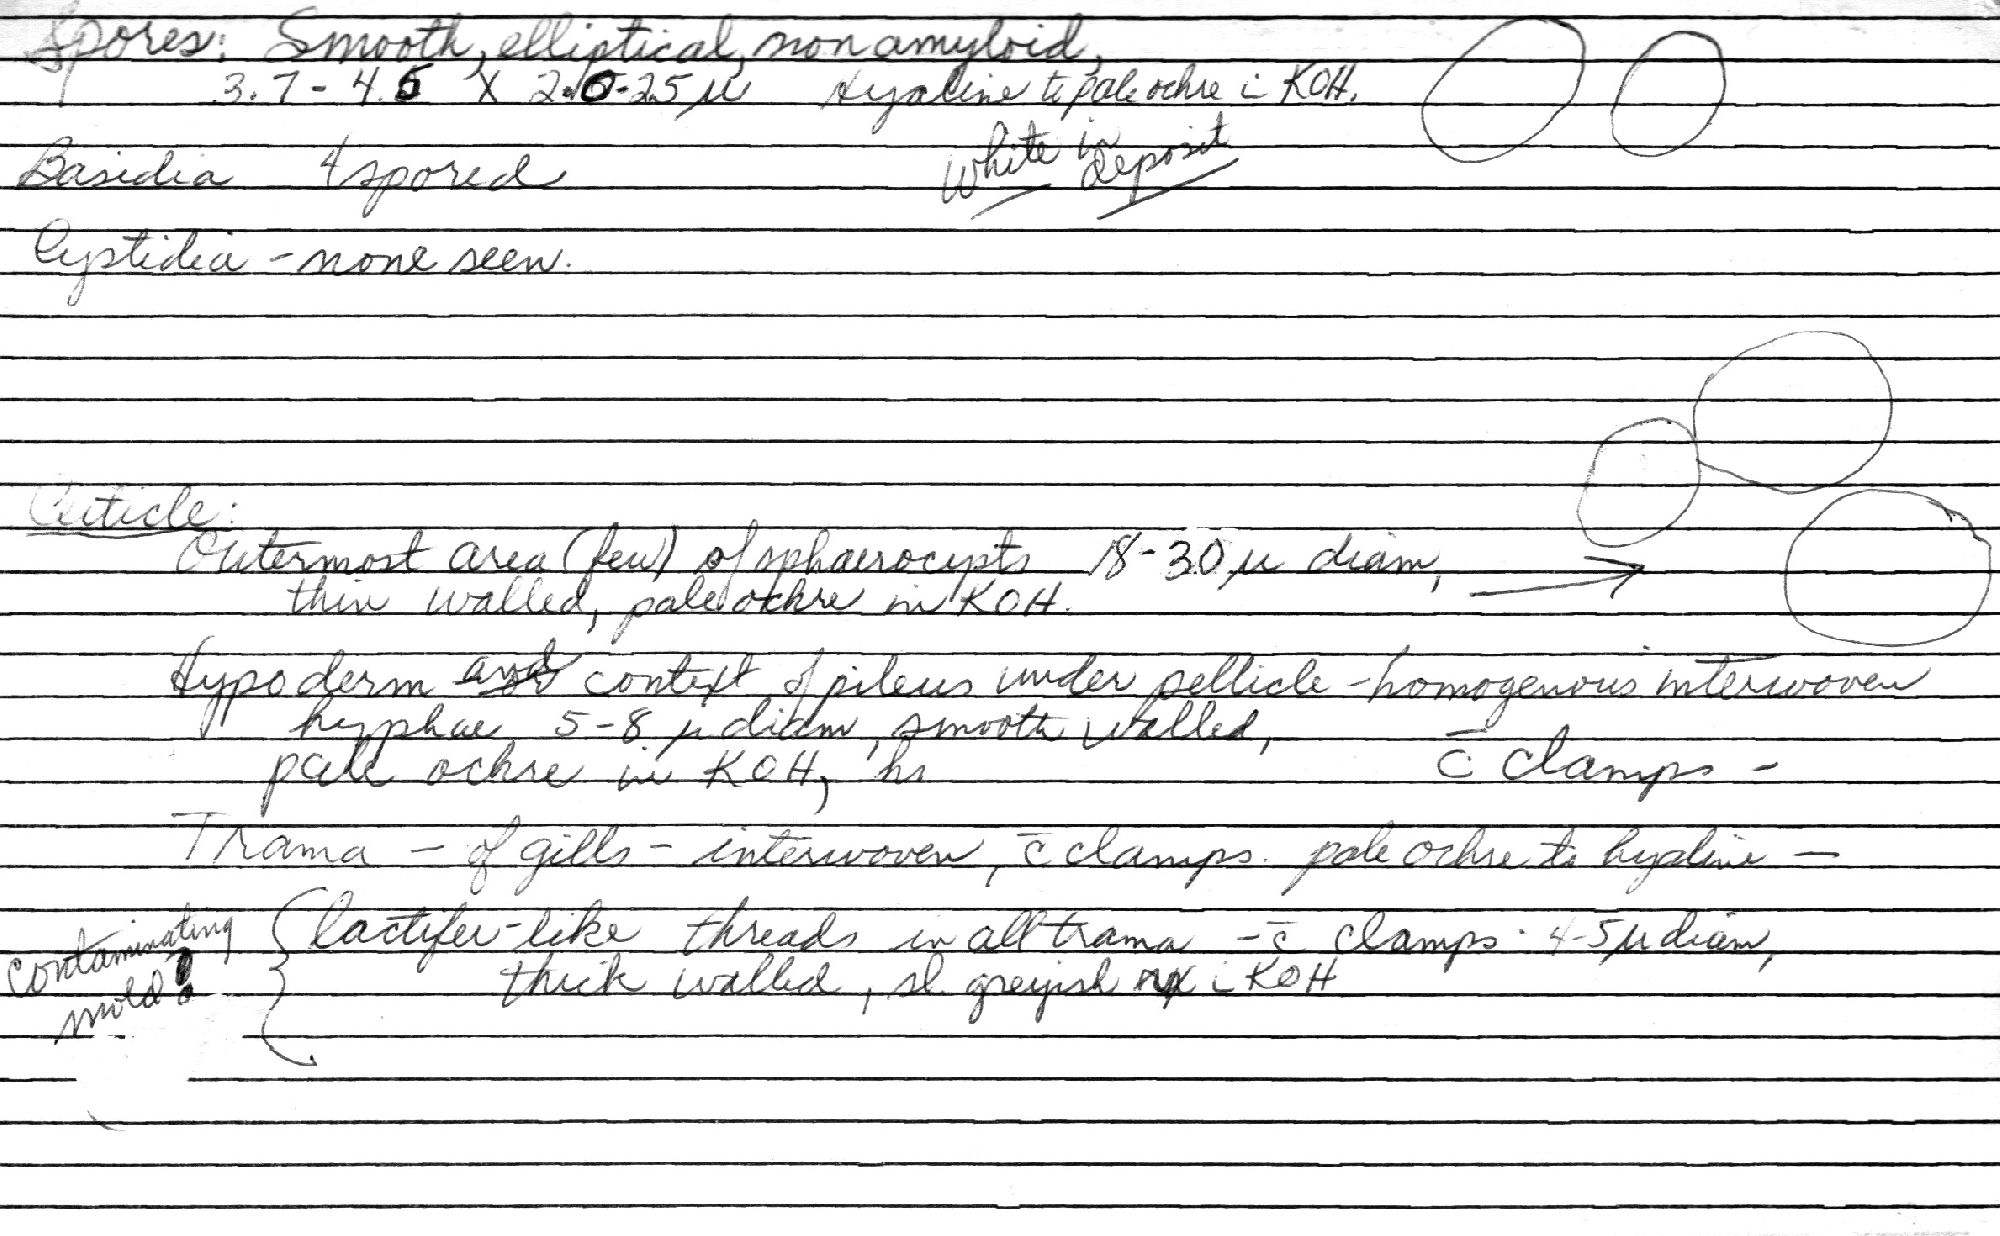 Spores: Smooth, elliptical, nonamyloid,
3.7 - 4.5 X 2.0-2.5 µ Hyaline to pale ochre c̄ KOH.
White in deposit
Basidia 4 spored
Cystidia - none seen.
Cuticle:
Outermost area (few) of sphaerocysts 18-30 µ diam,
thin walled, pale ochre in KOH.
Hypoderm and context of pileus under pellicle - homogenous interwoven
hyphae 5-8 µ diam, smooth walled,
pale ochre in KOH, c̄ clamps -
Trama - of gills - interwoven, c̄ clamps. pale ochre to hyaline -
contaminating mold!
lactifer-like threads in all trama - c̄ clamps. 4-5µ diam,
thick walled, sl. greyish c̄ KOH